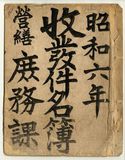 昭和六年
收發件名簿
營繕
庶務課